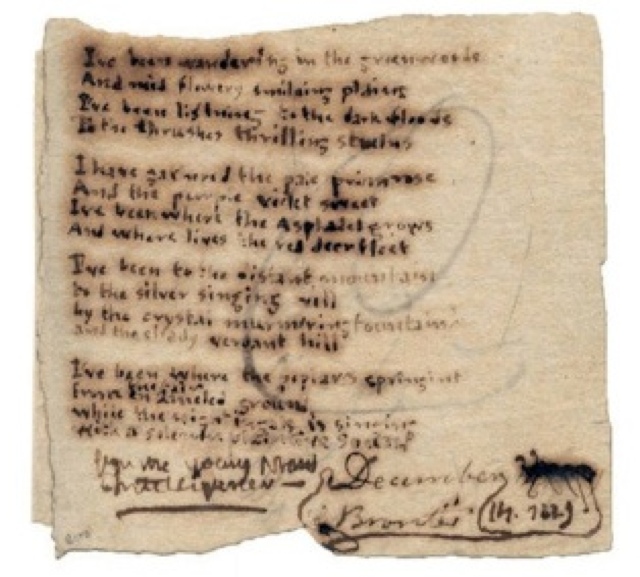 I've been wandering in the greenwoods
And mid flowery smilaing plains
I've been listning to the dark floods
To the thrushes thrilling strains

I have gathered the pale primrose
And the purple violet sweet
I've been where the Asphodel grows
And where lives the red deer fleet

I've been to the distant mountain
to the silver singing rill
by the crystal murmering fountain
and the shady verdant hill

I've been where the poplar is springing
from
while the is singing
with a solemn
young
December
Bronte